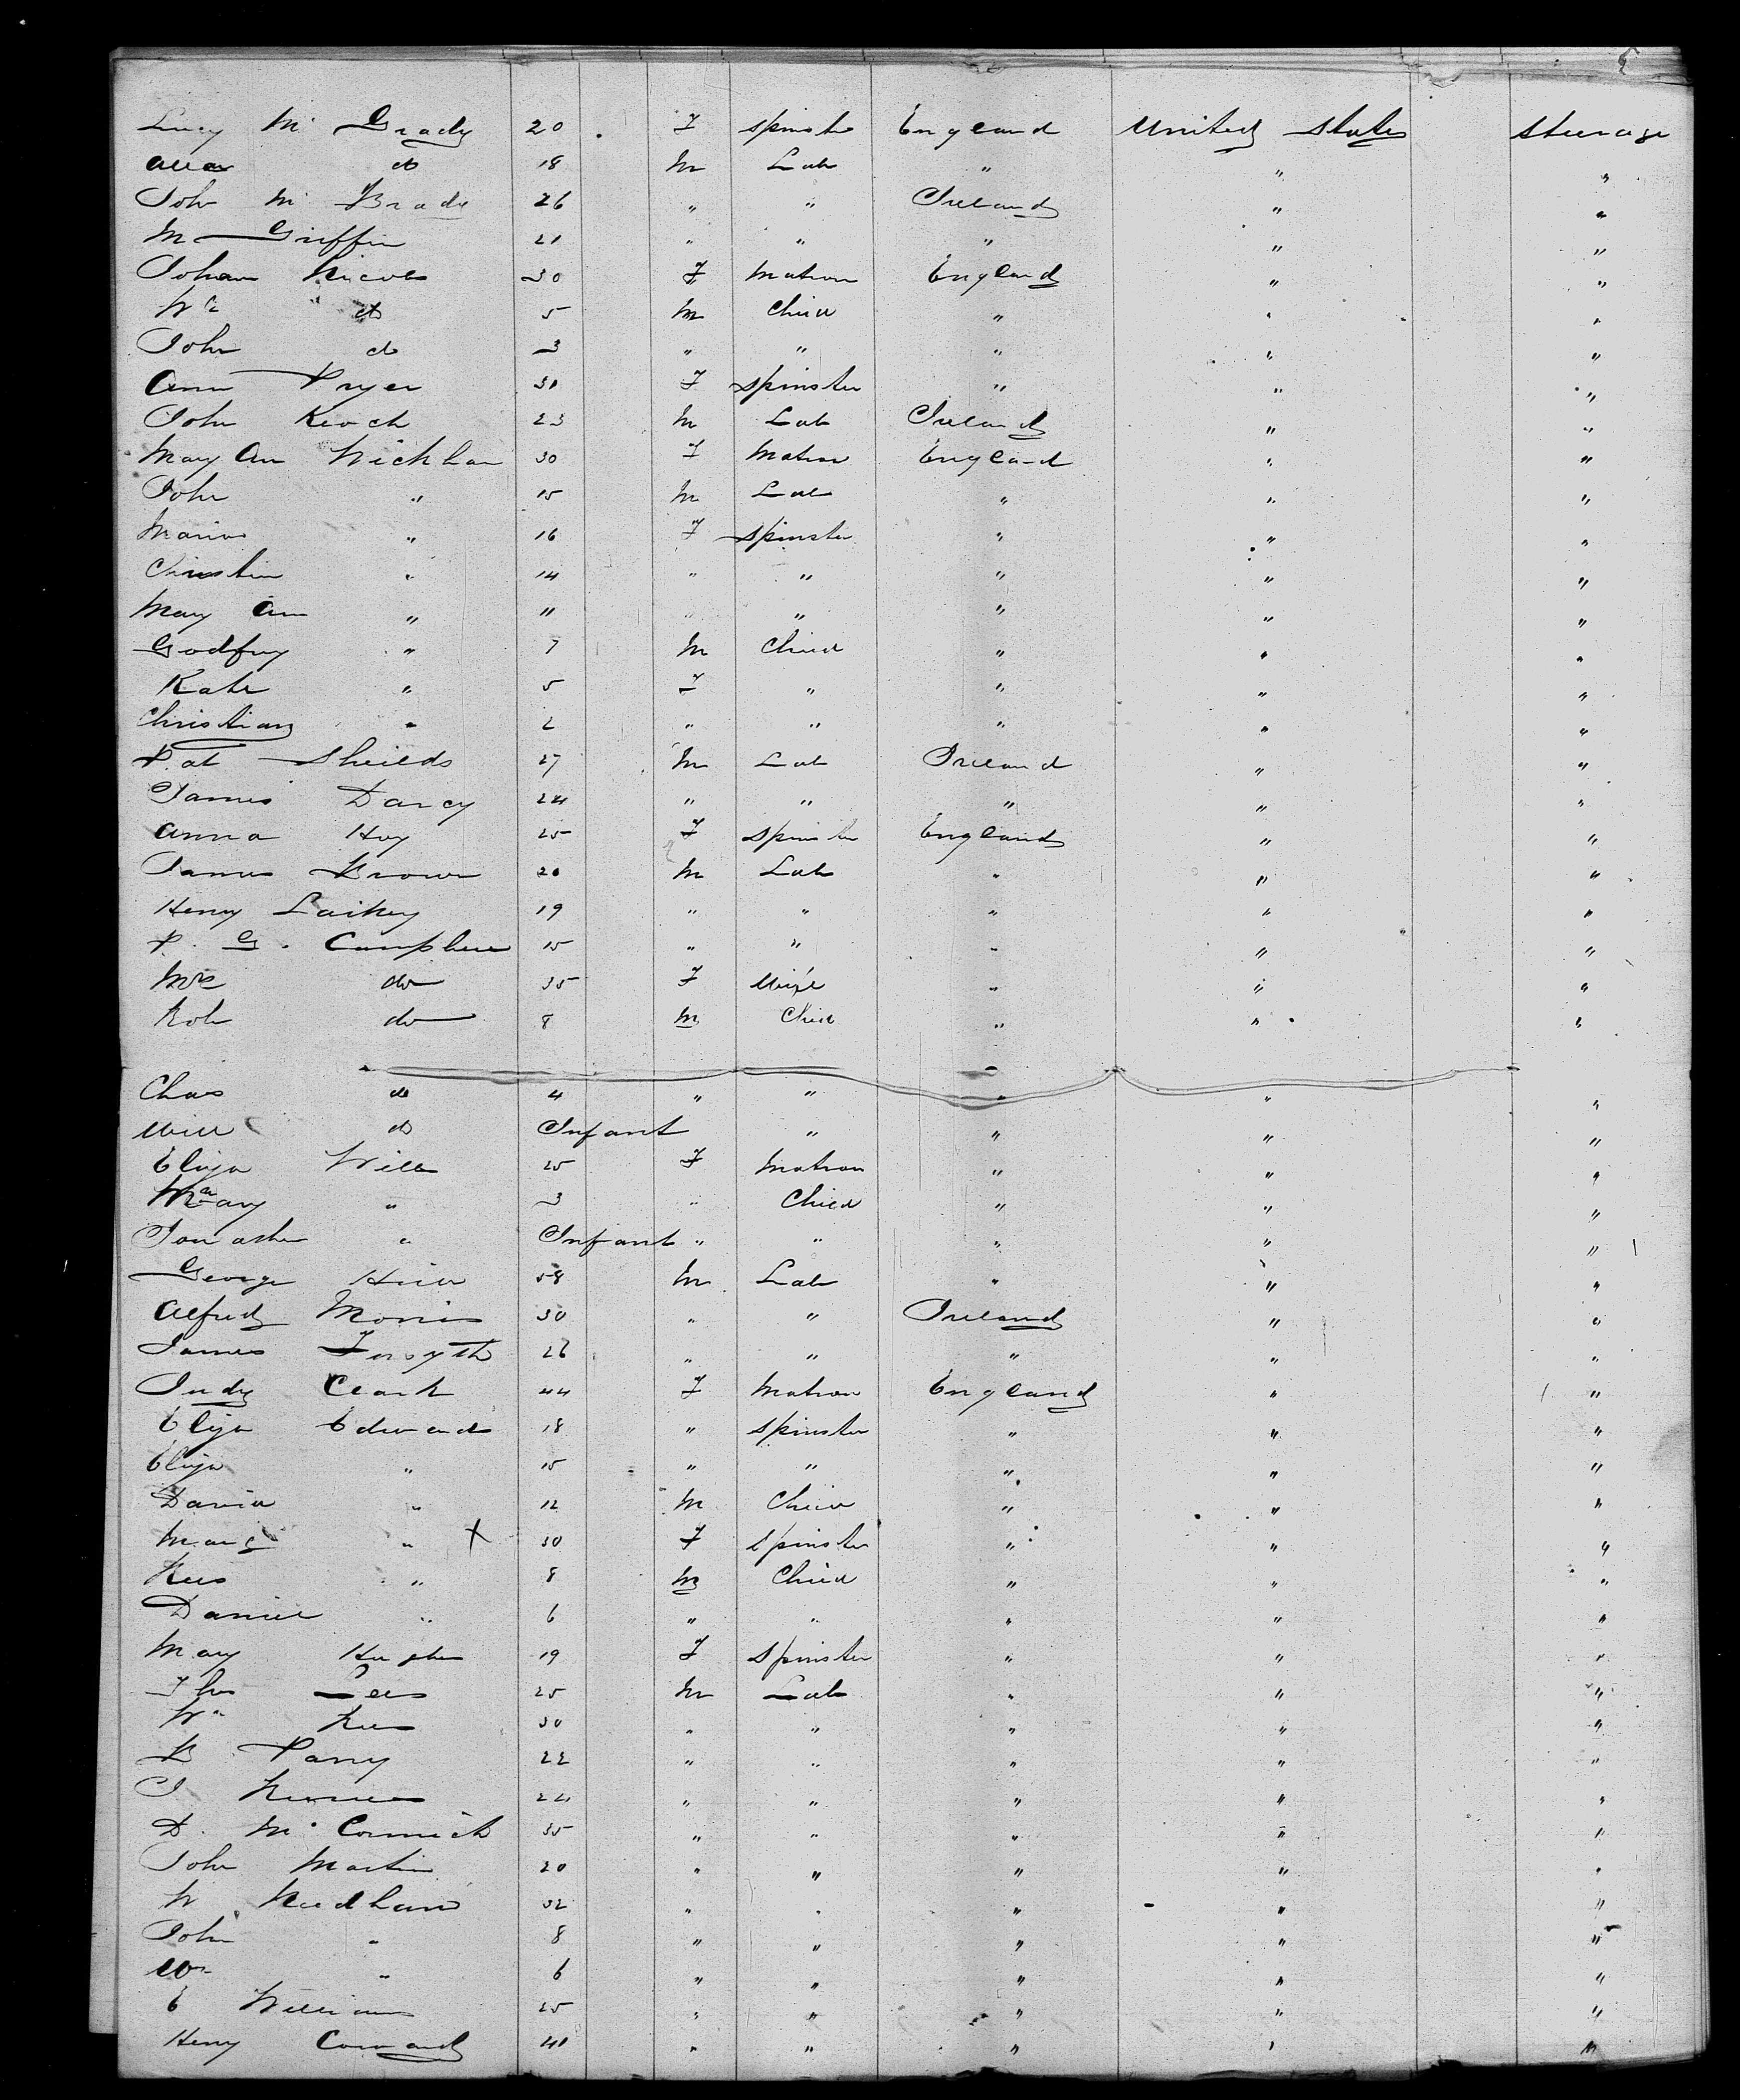 Lucy Mc Grady 20 F Spinster England United States Steerage
Allan do 18 M Lab " " "
John Mc Brade 26 " " Ireland " "
M Griffin 21 " " " " "
Johan 30 F Matron England " "
Wm do 5 M Child " " "
John do 3 " " " " "
Ann Pryer 30 F Spinster " " "
John Keoch 23 M Lab Ireland " "
Mary Ann Wickham 30 F Matron England " "
John " 15 M Lab " " "
Maria " 16 F Spinster " " "
Christin " 14 " " " " "
Mary Ann " 11 " " " " "
Godfrey " 7 M Child " " "
Kate " 5 F " " " "
Christian " 2 " " " " "
Pat Sheilds 27 M Lab Ireland " "
James Darcy 24 " " " " "
Anna Hoy 25 F Spinster England " "
James Brown 20 M Lab " " "
Henry Laikey 19 " " " " "
P. G. Campbell 15 " " " " "
Mrs do 35 F Wife " " "
Rob do 8 M Child " " "
Chas do 4 " " " " "
Will do Infant " " " "
Eliza Will 25 F Matron " " "
Mary " 3 " Child " " "
" Infant " " " " "
George Hill 58 M Lab " " "
Alfred Morris 30 " " Ireland " "
James Forsyth 26 " " " " "
Judy Clark 44 F Matron England " "
Eliza Edwards 18 " Spinster " " "
Eliza " 15 " " " " "
David " 12 M Child " " "
Marg " X 30 F Spinster " " "
Rees " 8 M Child " " "
Daniel " 6 " " " " "
Mary Hughes 19 F Spinster " " "
Thos Lees 25 M Lab " " "
Wm Rees 30 " " " " "
B Parry 22 " " " " "
J 24 " " " " "
D. Mc Cormick 35 " " " " "
John Martin 20 " " " " "
W Needham 32 " " " " "
John " 8 " " " " "
Wm " 6 " " " " "
E Williams 25 " " " " "
Henry Coward 40 " " " " "